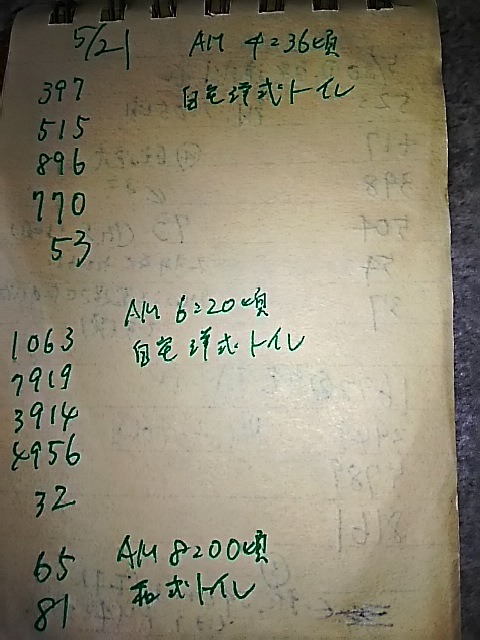 5/21 AM 4:36頃
397 自宅洋式トイレ
515
896
770
53
AM 6:20頃
1063 自宅洋式トイレ
7919
3914
4956
32
65 AM 8:200頃
81 和式トイレ